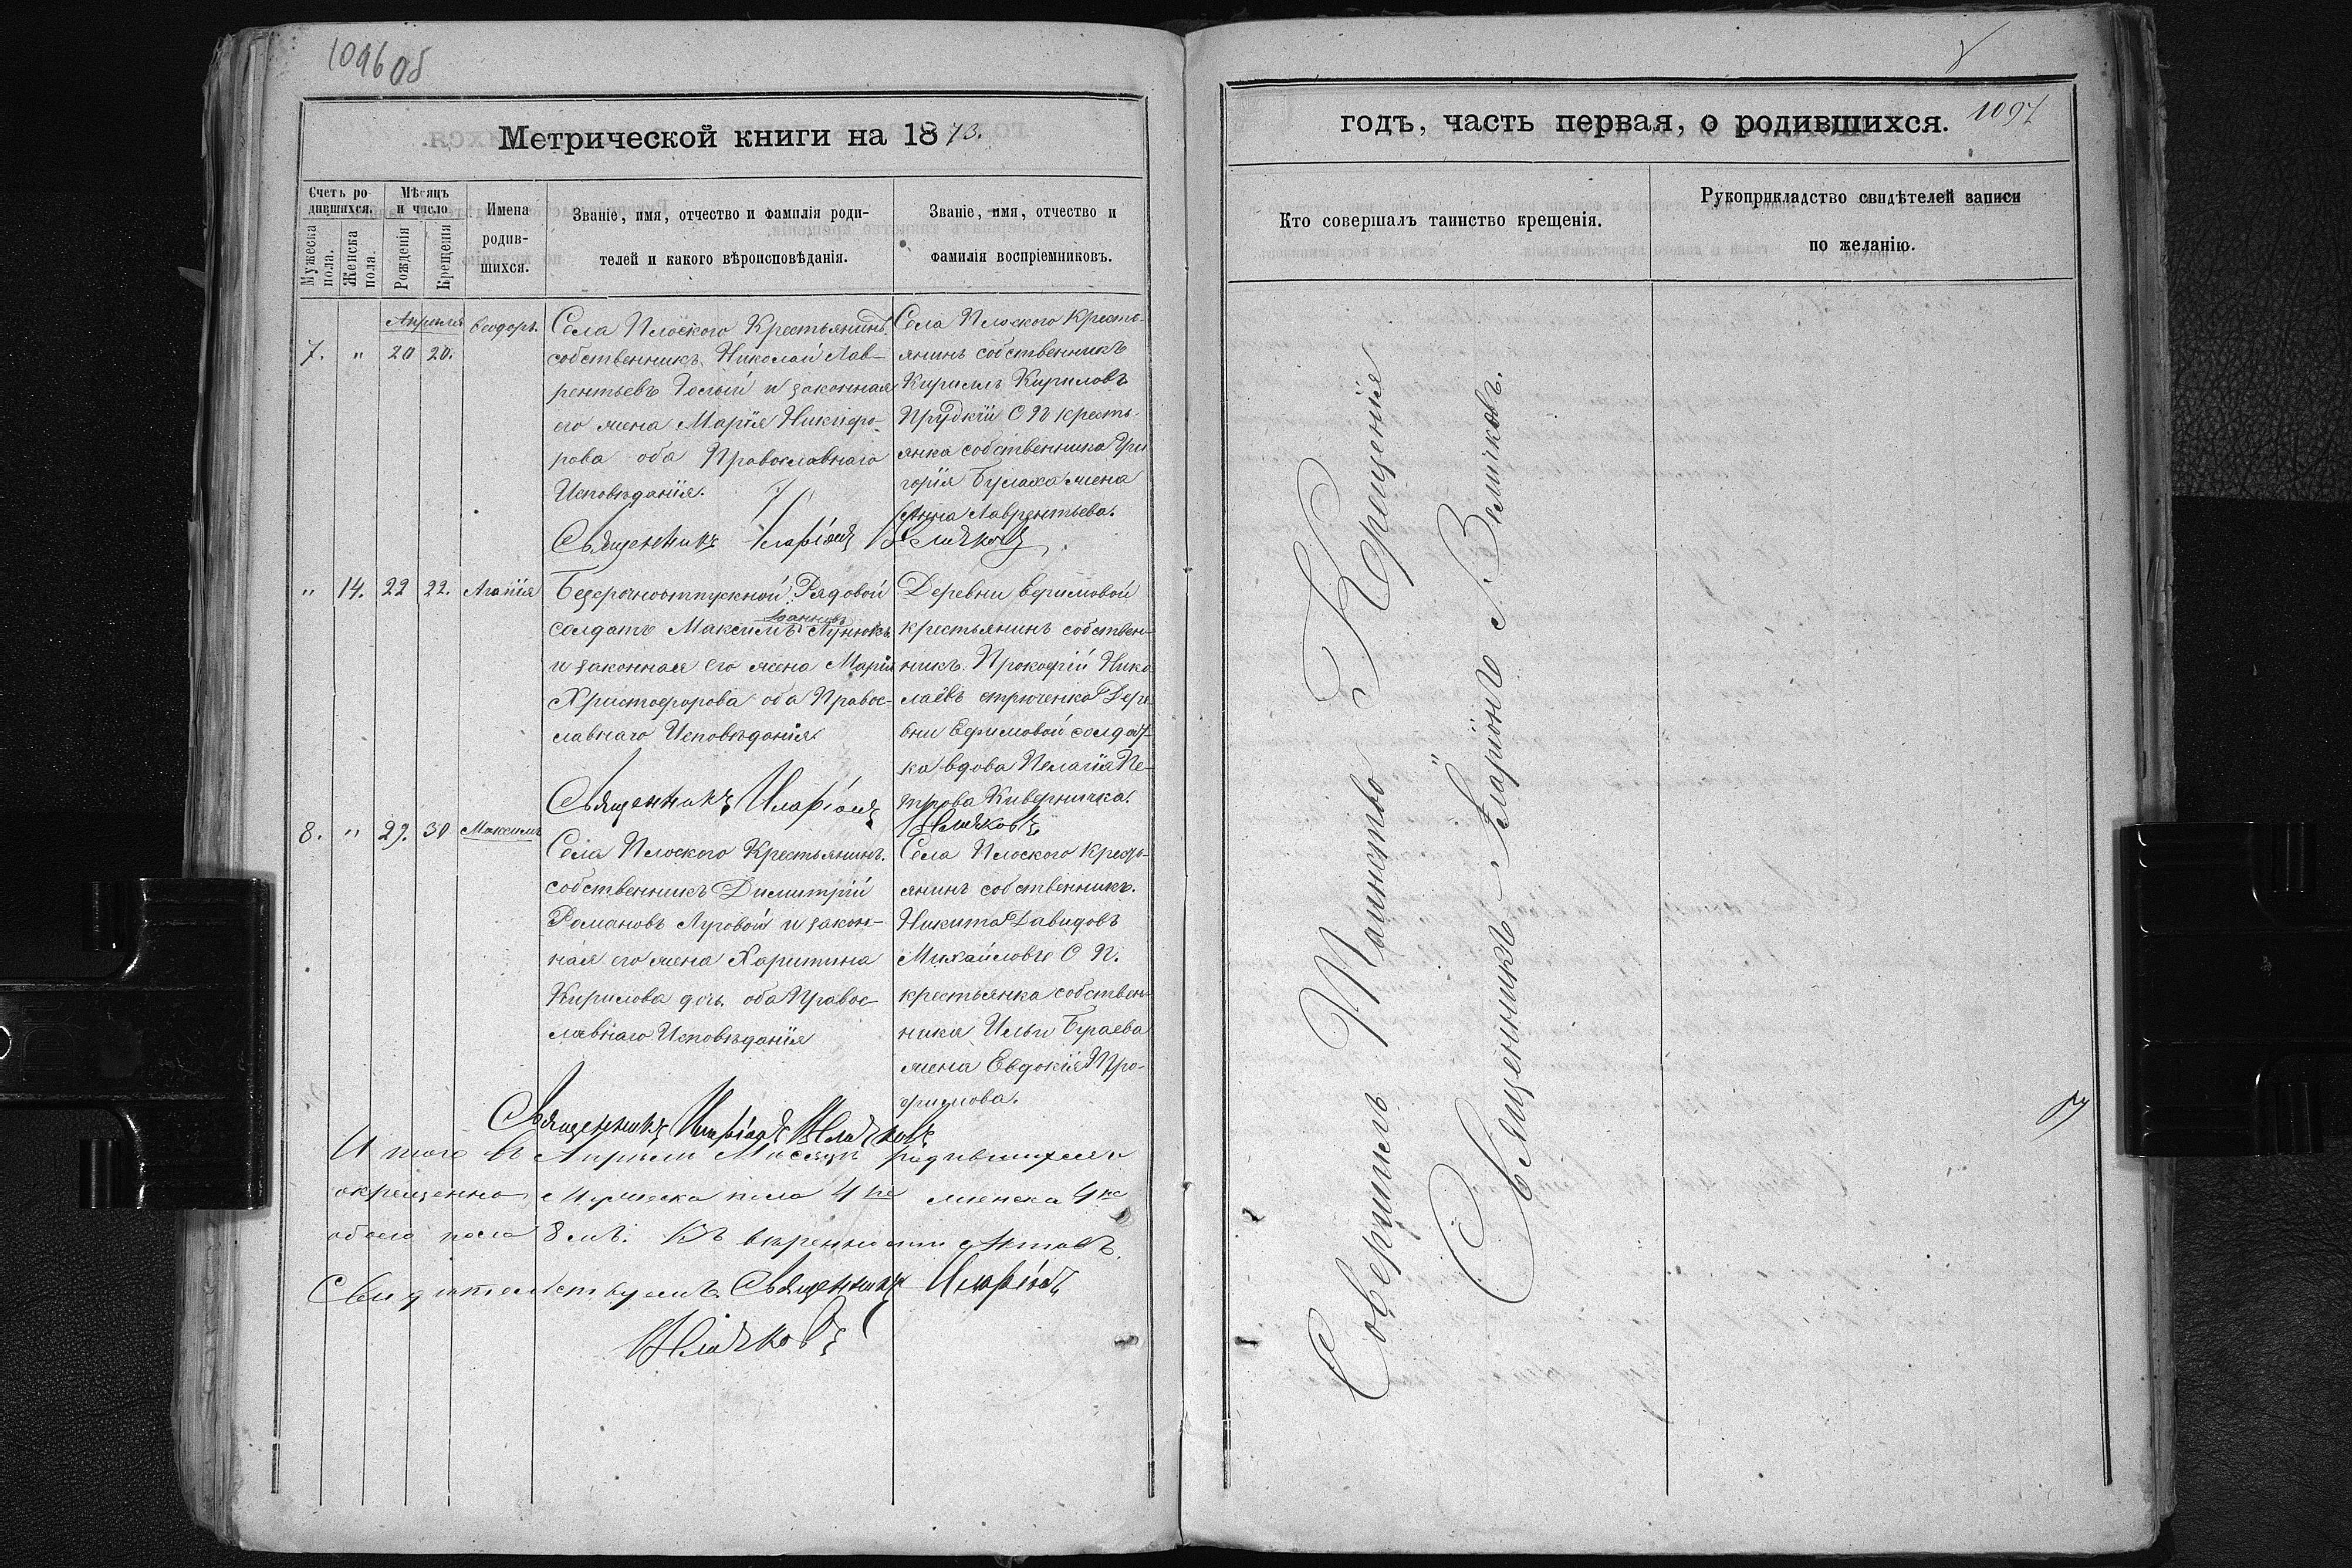 1096 об
Метрической книги на 1873.
Счетъ ро-
дившихся.
Мѣсяцъ
и число
Мужеска
пола.
Женска
пола.
Рожденія
Крещенія
Имена
родив-
шихся.
Званіе, имя, отчество и фамилія роди-
телей и какого вѣроисповѣданія.
Званіе, имя, отчество и
фамилія воспріемниковъ.
Апрѣля
7. " 20 20.
Ѳеодоръ.
Села Плоского Крестьянинъ
собственникъ Николай Лав-
рентьевъ Голый и законная
его жена Марія Никифо-
рова оба Православнаго
Исповѣданія.
Села Плоского Кресть-
янинъ собственникъ
Кириллъ Кириловъ
Прудкій С П кресть-
янка собственника Гри
горія Булаха жена
Анна Лаврентьева.
Священникъ Иларіонъ Величковъ
" 14. 22 22.
Агапія
Безсрочноотпускной Рядовой
солдатъ Максимъ Іоанновъ Лунюкъ
и законная его жена Марія
Христофорова оба Правос-
лавнаго Исповѣданія.
Деревни Еримовой
крестьянинъ собствен-
никъ Прокофій Нико
лаевъ Дере
вни Еримовой солдат-
ка вдова Пелагія Пе-
трова
Священникъ Иларіонъ Величковъ
8. " 29. 30
Максимъ
Села Плоского Крестьянинъ.
собственникъ Димитрій
Романовъ Луговой и закон-
ная его жена Харитина
Кирилова дочь оба Правос-
лавнаго Исповѣданія
Села Плоского Кресть-
янинъ собственникъ.
Никита Давидовъ
Михайловъ С П.
крестьянка собствен-
ника Ильи Бугаева
жена Евдокія Тро-
фимова.
Священникъ Иларіонъ Величковъ
Итого въ Апрѣли Мѣсяцѣ родившихся и
окрещенно Мужеска пола 4ре женска 4ре
обоего пола 8мъ. Къ вѣренности актовъ
Свидѣтельствуемъ. Священникъ Иларіонъ
Величковъ
1097
годъ, часть первая, о родившихся.
Кто совершалъ таинство крещенія.
Рукоприкладство свидѣтелей записи
по желанію.
Совершилъ Таинство Крещенія
Священникъ Иларіонъ Величковъ.